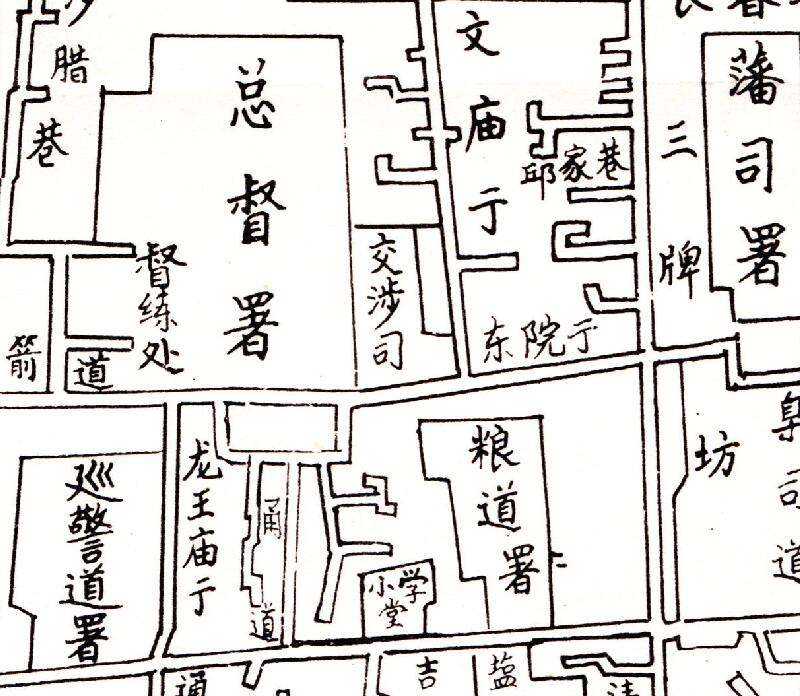 腊巷
总督署
文庙亍
邱家巷
三牌坊
藩司署
督练处
交涉司
东院亍
箭道
巡警道署
龙王庙亍
甬道
粮道署
小学堂
臬司道
通
吉
盐